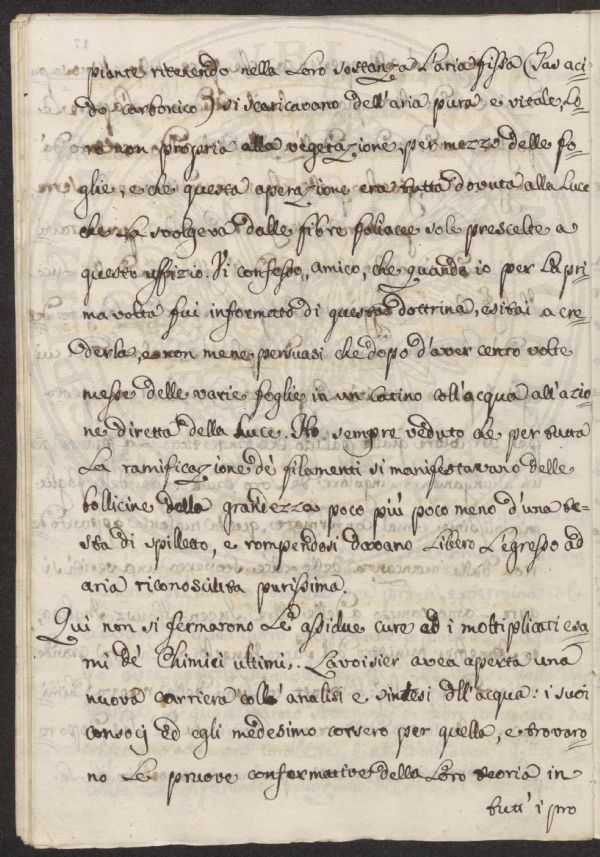 piante ritenendo nella Loro sostanza L'aria fissa (Gas aci=
do carbonico) si scaricavano dell'aria pura e vitale, Lo=
ro non propria alla vegetazione, per mezzo delle fo=
glie, e che questa aperazione era tutta dovuta alla Luce
che La svolgeva dalle fibre foliacee sole prescelte a
questo uffizio. Vi confesso, amico, che quando io per La pri=
ma volta fui informato di questa dottrina, esitai a cre=
derla, e non me ne persuasi che dopo d'aver cento volte
messe delle varie foglie in un Catino coll'acqua all'azio=
ne diretta della Luce. Ho sempre veduto che per tutta
La ramificazione de' filamenti si manifestavano delle
bollicine della grandezza poco più poco meno d'una te=
sta di spilletto, e rompendosi davano Libero L'egresso ad
aria riconosciuta purissima.
Qui non si fermarono Le assidue cure ed i moltiplicati esa=
mi de' Chimici ultimi. Lavoisier avea aperta una
nuova carriera coll'analisi e sintesi dell'acqua: i suoi
consocj ed egli medesimo corsero per quella, e trovaro=
no Le pruove confermative della Loro teoria in
tutt' i pro